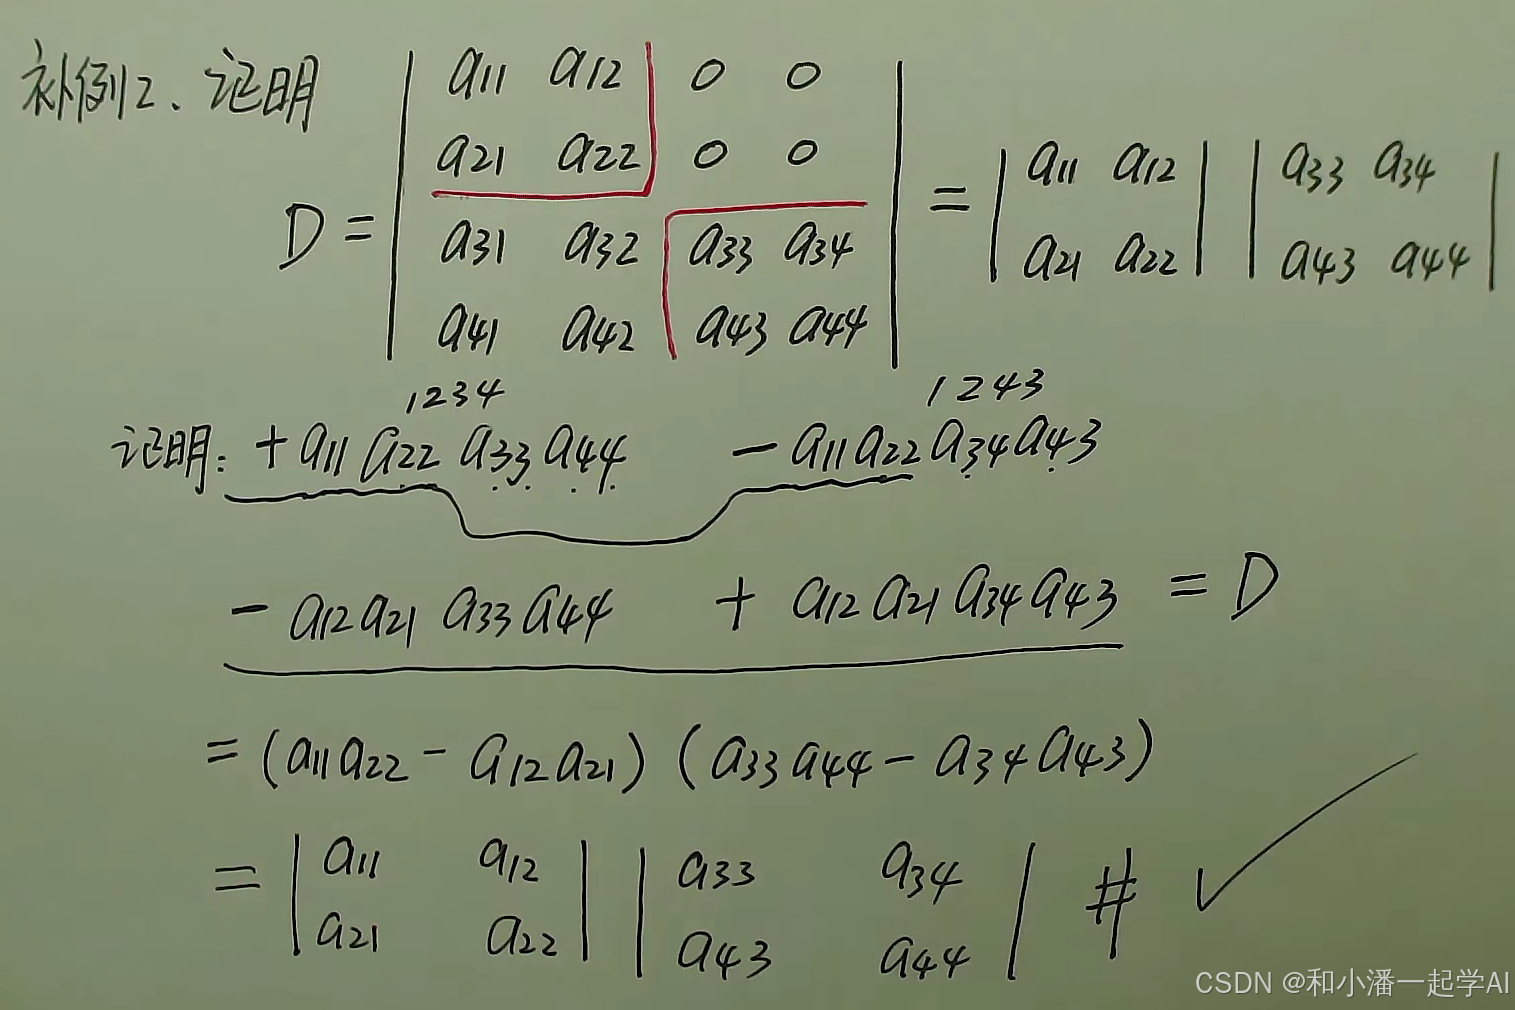 补例2、证明
D = | a11 a12 0 0 |
| a21 a22 0 0 |
| a31 a32 a33 a34 |
| a41 a42 a43 a44 |
= | a11 a12 | | a33 a34 |
| a21 a22 | | a43 a44 |
1234 1243
证明: + a11 a22 a33 a44 - a11 a22 a34 a43
- a12 a21 a33 a44 + a12 a21 a34 a43 = D
= (a11 a22 - a12 a21) (a33 a44 - a34 a43)
= | a11 a12 | | a33 a34 | # ✓
| a21 a22 | | a43 a44 |
CSDN @和小潘一起学AI